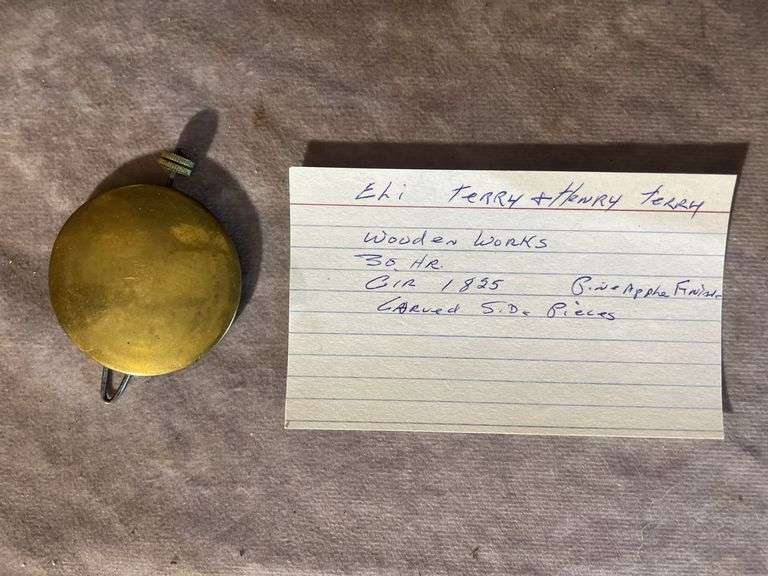 Eli Terry & Henry Terry
Wooden Works
30 HR.
Cir 1825 PineApple Finish
Carved Side Pieces